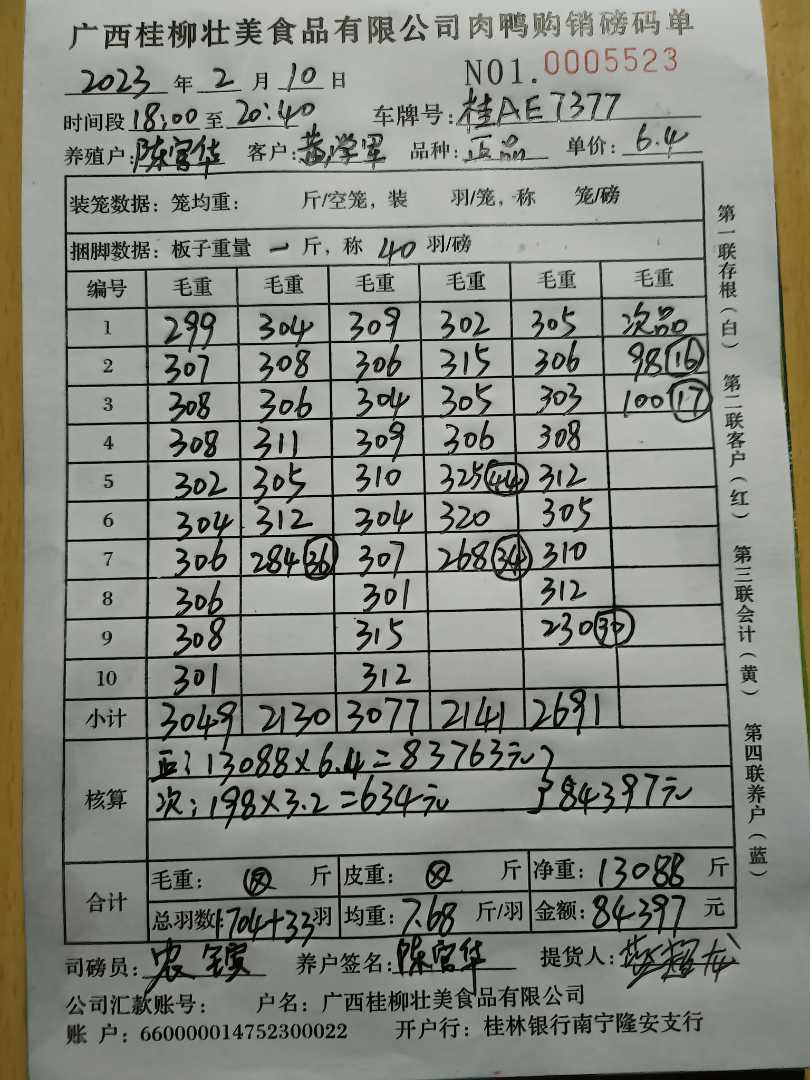 广西桂柳壮美食品有限公司肉鸭购销磅码单
2023 年 2 月 10 日 NO1.0005523
时间段 18:00 至 20:40 车牌号: 桂AE7377
养殖户: 陈官华 客户: 黄学军 品种: 正品 单价: 6.4
装笼数据: 笼均重: 斤/空笼, 装 羽/笼, 称 笼/磅
捆脚数据: 板子重量 一 斤, 称 40 羽/磅
编号 毛重 毛重 毛重 毛重 毛重 毛重
1 299 304 309 302 305 次品
2 307 308 306 315 306 98 16
3 308 306 304 305 303 100 17
4 308 311 309 306 308
5 302 305 310 325 44 312
6 304 312 304 320 305
7 306 284 36 307 268 34 310
8 306 301 312
9 308 315 230 30
10 301 312
小计 3049 2130 3077 2141 2691
核算 正: 13088×6.4=83763元
次: 198×3.2=634元 } 84397元
合计 毛重: 斤 皮重: 斤 净重: 13088 斤
总羽数: 1704+33 羽 均重: 7.68 斤/羽 金额: 84397 元
司磅员: 农 养户签名: 陈官华 提货人:
公司汇款账号: 户名: 广西桂柳壮美食品有限公司
账 户: 660000014752300022 开户行: 桂林银行南宁隆安支行
第一联存根(白)
第二联客户(红)
第三联会计(黄)
第四联养户(蓝)